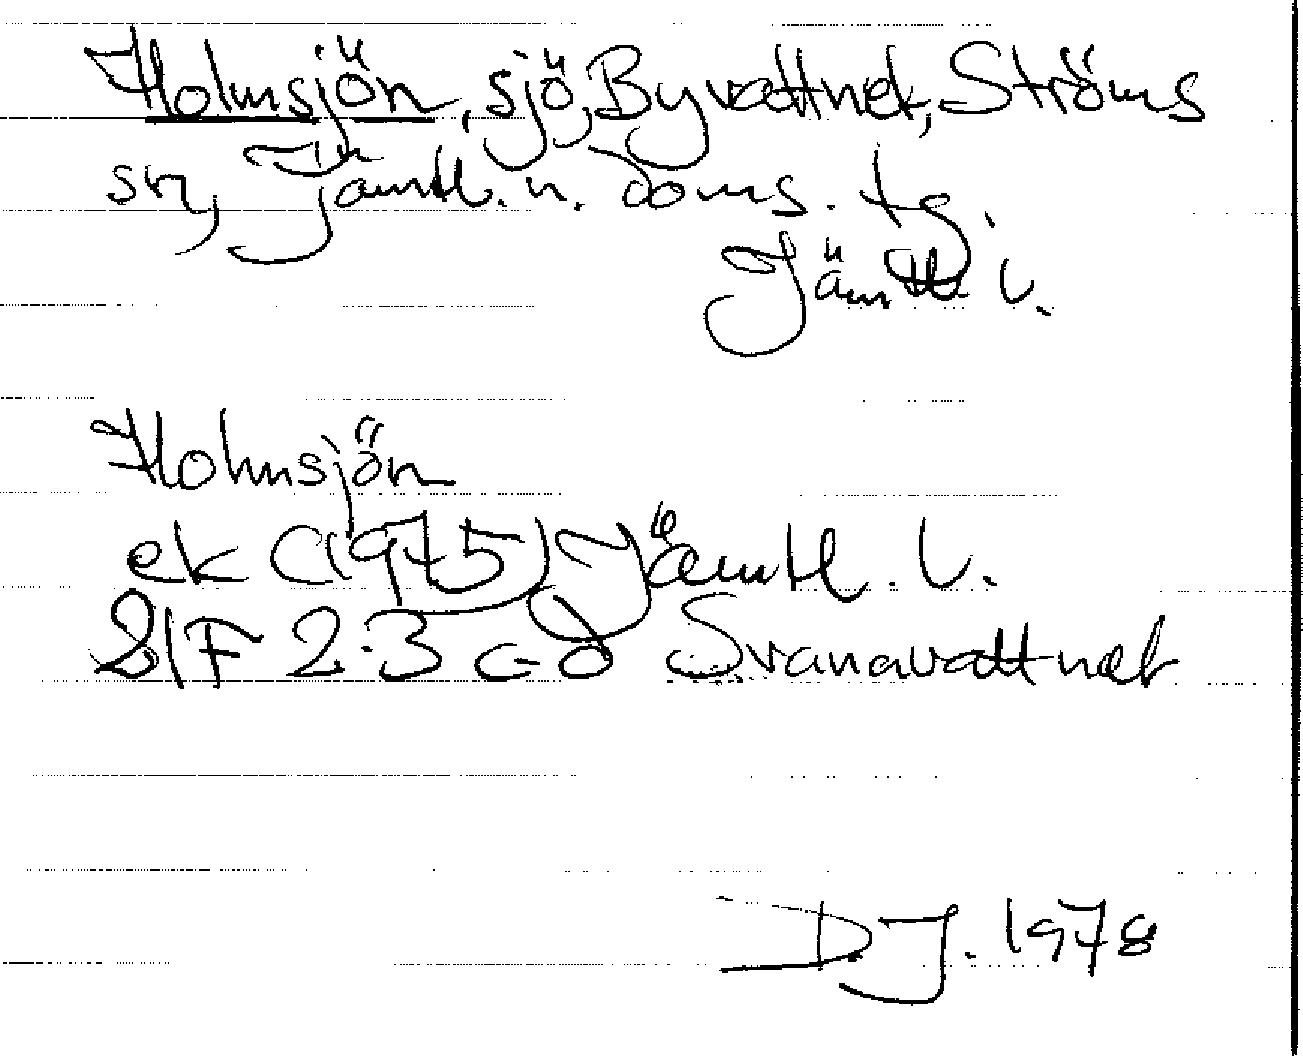 Holmsjön, sjö, Byvattnet, Ströms
sn, Jämtl. n. doms. tg.
Jämtl. l.
Holmsjön
ek (1975) Jämtl. l.
21F 2-3 c-d Svanavattnet
DJ. 1978